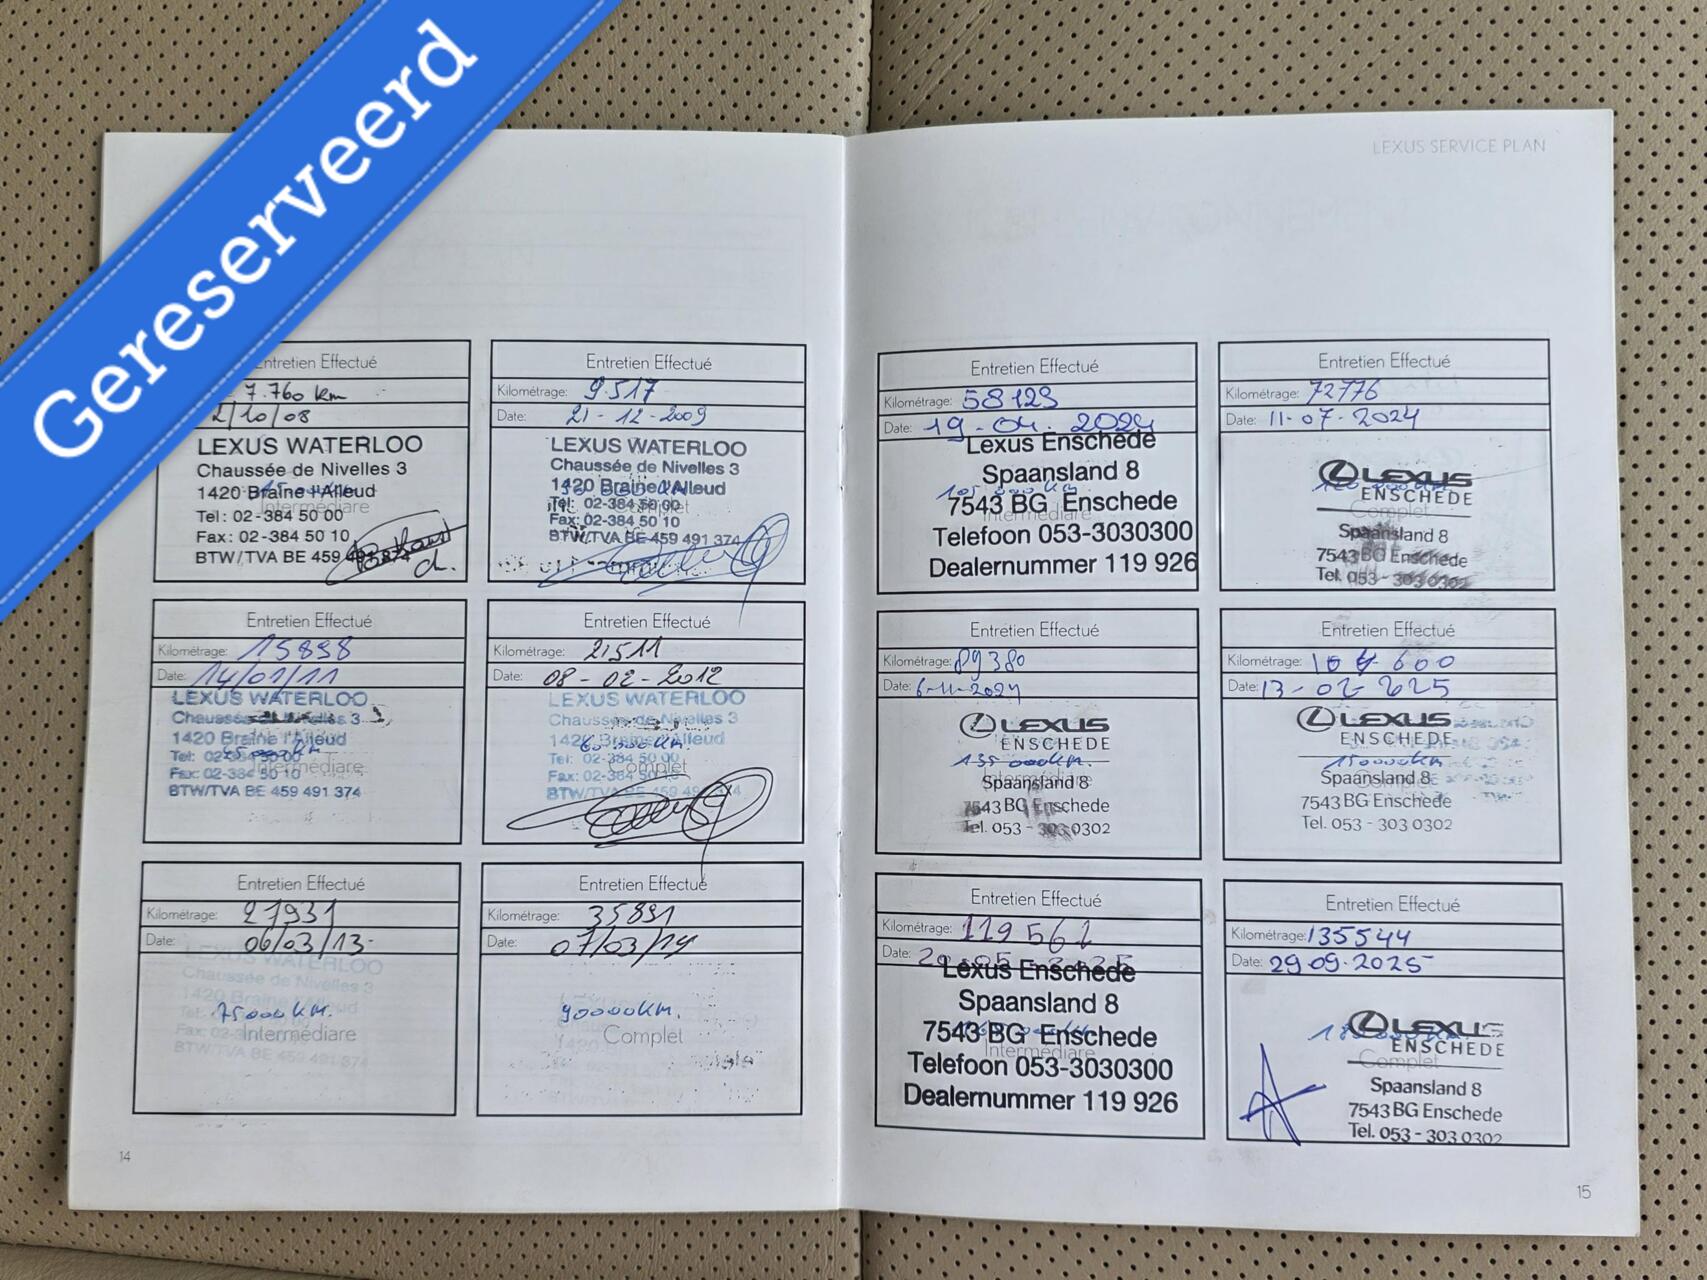 Gereserveerd
LEXUS SERVICE PLAN
Entretien Effectué
7.760 km
2/10/08
LEXUS WATERLOO
Chaussée de Nivelles 3
1420 Braine l'Alleud
Intermédiare
Tel: 02-384 50 00
Fax: 02-384 50 10
BTW/TVA BE 459
Entretien Effectué
Kilométrage: 9.517
Date: 21-12-2009
LEXUS WATERLOO
Chaussée de Nivelles 3
1420 Braine l'Alleud
Tel: 02-384 50 00
Fax: 02-384 50 10
BTW/TVA BE 459 491 374
Entretien Effectué
Kilométrage: 15898
Date: 14/01/11
LEXUS WATERLOO
Chaussée 3
1420 Braine l'Alleud
Tel: 02-384 50 00
Intermédiare
Fax: 02-384 50 10
BTW/TVA BE 459 491 374
Entretien Effectué
Kilométrage: 21511
Date: 08-02-2012
LEXUS WATERLOO
Chaussée de Nivelles 3
1420 Braine l'Alleud
60 000km.
Tel: 02-384 50 00
Complet
Fax: 02-384 50 10
BTW/TVA BE 459 491 374
Entretien Effectué
Kilométrage: 27931
Date: 06/03/13-
LEXUS WATERLOO
Chaussée de Nivelles 3
1420 Braine l'Alleud
75000KM.
Intermédiare
BTW/TVA BE 459 491 374
Entretien Effectué
Kilométrage: 35891
Date: 07/03/14
90000KM.
Complet
14
Entretien Effectué
Kilométrage: 58123
Date: 19-04-2024
Lexus Enschede
Spaansland 8
105 000 km
7543 BG Enschede
Intermédiare
Telefoon 053-3030300
Dealernummer 119 926
Entretien Effectué
Kilométrage: 72776
Date: 11-07-2024
LEXUS
ENSCHEDE
Complet
Spaansland 8
7543 BG Enschede
Tel. 053 - 303 0302
Entretien Effectué
Kilométrage: 89380
Date: 6-11-2024
LEXUS
ENSCHEDE
135 000km.
Intermédiare
Spaansland 8
7543 BG Enschede
Tel. 053 - 303 0302
Entretien Effectué
Kilométrage: 104.600
Date: 13-02-2025
LEXUS
ENSCHEDE
150000km
Spaansland 8
7543 BG Enschede
Tel. 053 - 303 0302
Entretien Effectué
Kilométrage: 119562
Date:
Lexus Enschede
Spaansland 8
7543 BG Enschede
Intermédiare
Telefoon 053-3030300
Dealernummer 119 926
Entretien Effectué
Kilométrage: 135544
Date: 29-09-2025
LEXUS
ENSCHEDE
Complet
Spaansland 8
7543 BG Enschede
Tel. 053 - 303 0302
15